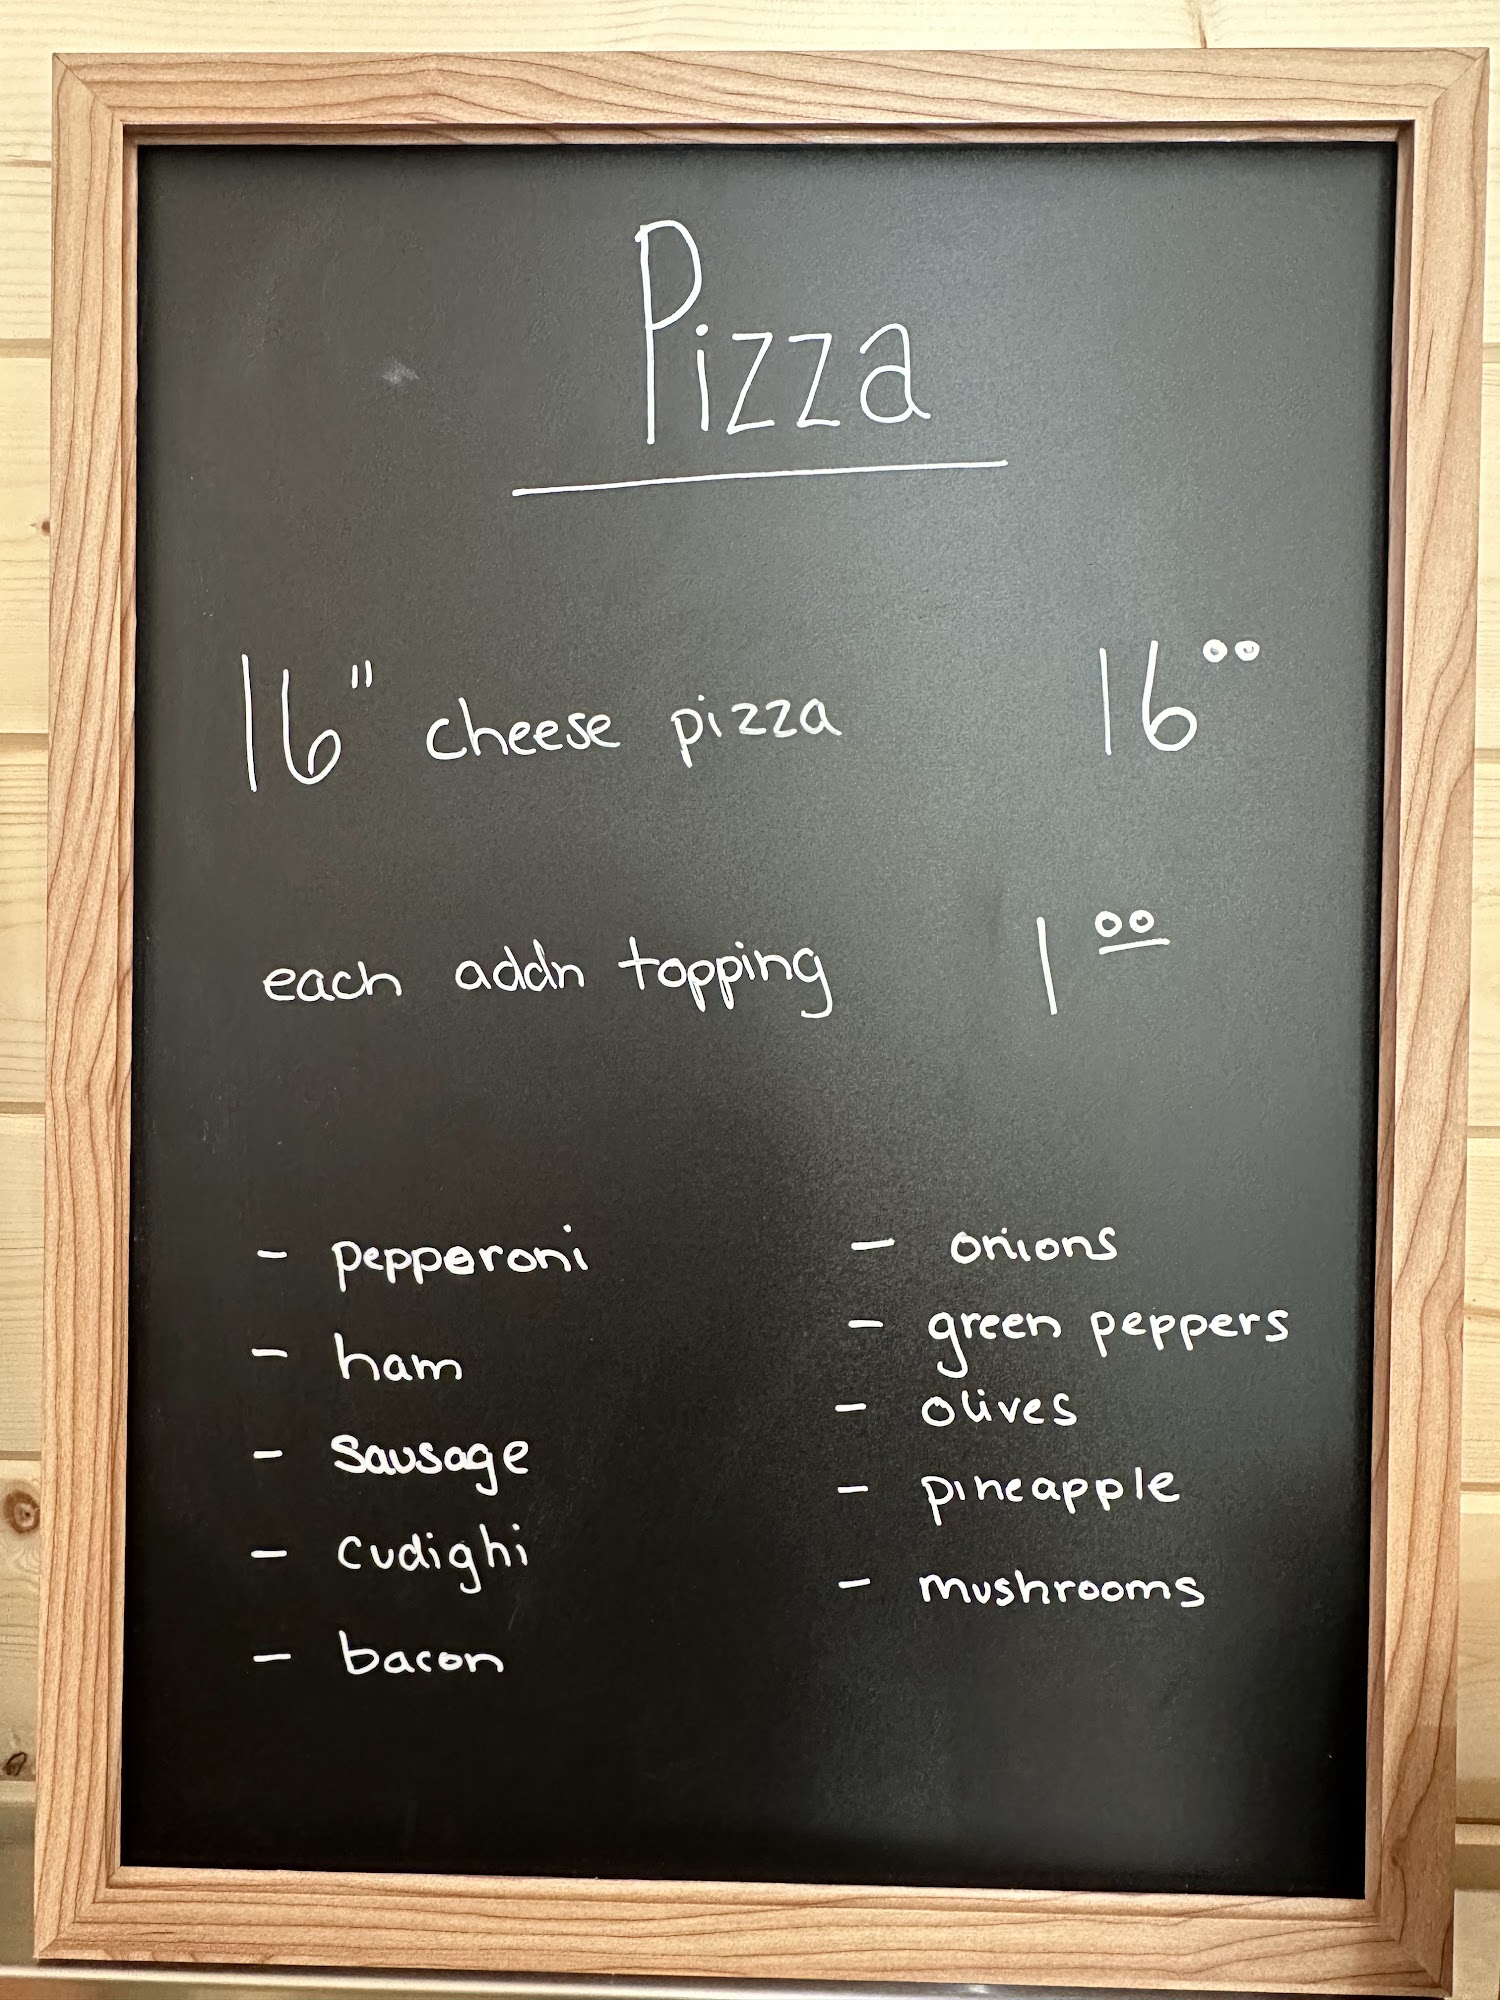 Pizza
16" cheese pizza 16⁰⁰
each addn topping 1⁰⁰
- pepperoni
- ham
- sausage
- cudighi
- bacon
- onions
- green peppers
- olives
- pineapple
- mushrooms